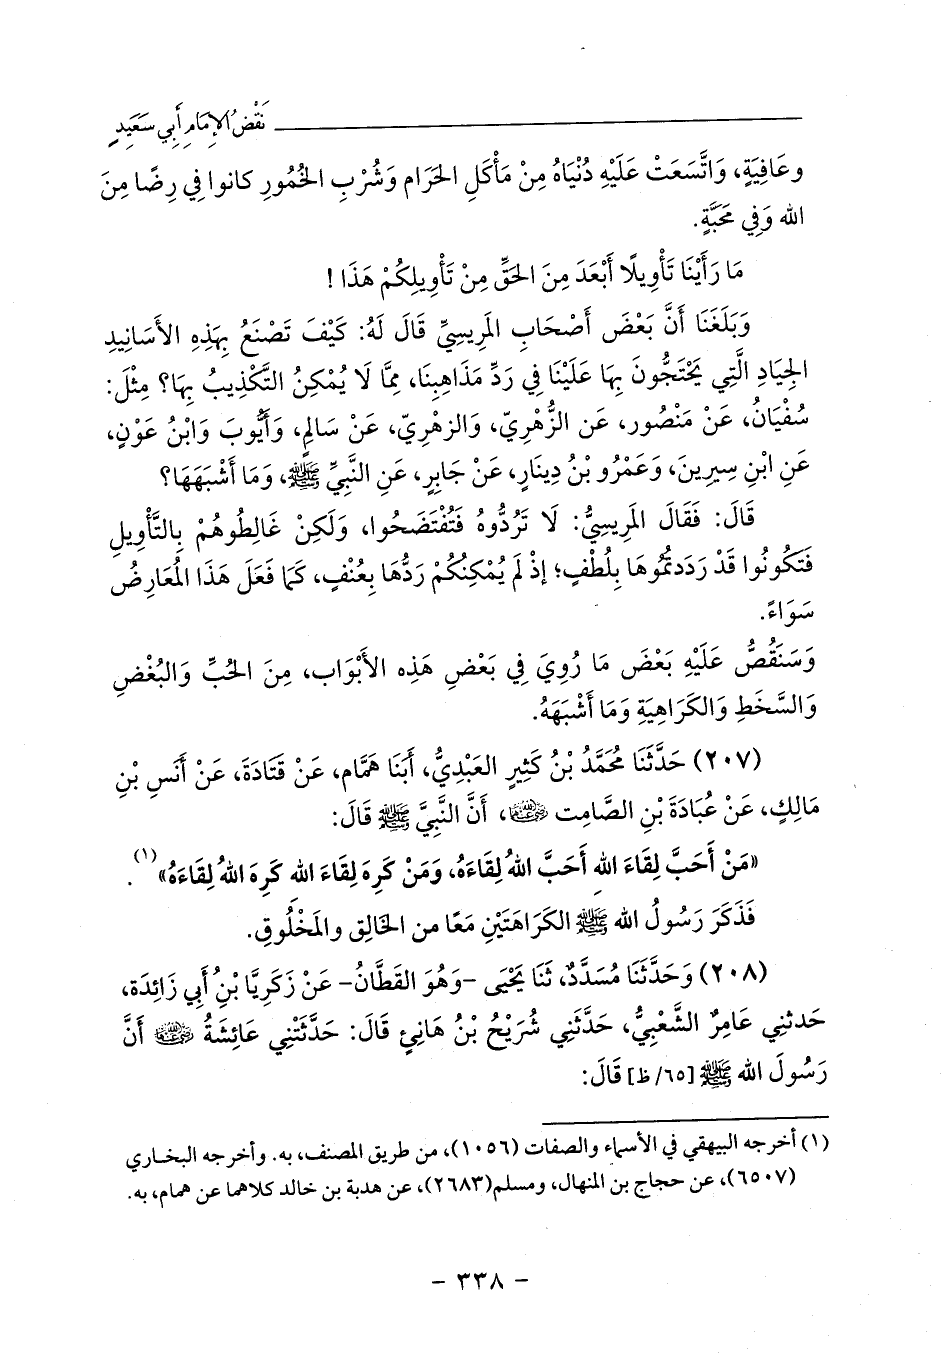 نَقْضُ الإِمَامِ أَبِي سَعِيدٍ
وعَافِيَةٍ، وَاتَّسَعَتْ عَلَيْهِ دُنْيَاهُ مِنْ مَأْكَلِ الحَرَام وَشُرْبِ الخُمُورِ كانوا فِي رِضًا مِنَ
الله وَفِي مَحَبَّةٍ.
مَا رَأَيْنَا تَأْوِيلًا أَبْعَدَ مِنَ الحَقِّ مِنْ تَأْوِيلِكُمْ هَذَا !
وَبَلَغَنَا أَنَّ بَعْضَ أَصْحَابِ المَرِيسِيِّ قَالَ لَهُ: كَيْفَ تَصْنَعُ بِهَذِهِ الأَسَانِيدِ
الجِيَادِ الَّتِي يَحْتَجُّونَ بِهَا عَلَيْنَا فِي رَدِّ مَذَاهِبِنَا، مِمَّا لَا يُمْكِنُ التَّكْذِيبُ بِهَا؟ مِثْلَ:
سُفْيَانُ، عَنْ مَنْصُور، عَن الزُّهْرِيّ، وَالزهْرِيّ، عَنْ سَالِمٍ، وَأَيُّوبَ وَابْنُ عَوْنٍ،
عَنِ ابْنِ سِيرِينَ، وَعَمْرُو بْنُ دِينَارٍ، عَنْ جَابِرٍ، عَنِ النَّبِيِّ ﷺ، وَمَا أَشْبَهَهَا؟
قَالَ: فَقَالَ المَرِيسِيُّ: لَا تَرُدُّوهُ فَتُفْتَضَحُوا، وَلَكِنْ غَالِطُوهُمْ بِالتَّأْوِيلِ
فَتَكُونُوا قَدْ رَدَدتُمُوهَا بِلُطْفٍ؛ إذْ لَمْ يُمْكِنْكُمْ رَدُّهَا بِعُنْفٍ، كَمَا فَعَلَ هَذَا المُعَارِضُ
سَوَاءً.
وَسَنَقُصُّ عَلَيْهِ بَعْضَ مَا رُوِيَ فِي بَعْضِ هَذِه الأَبْوَاب، مِنَ الحُبِّ وَالبُغْضِ
وَالسَّخَطِ وَالكَرَاهِيَةِ وَمَا أَشْبَهَهُ.
(٢٠٧) حَدَّثَنَا مُحَمَّدُ بْنُ كَثِيرٍ العَبْدِيُّ، أَبَنَا هَمَّام، عَنْ قَتَادَةَ، عَنْ أَنَسِ بْنِ
مَالِكٍ، عَنْ عُبَادَةَ بْنِ الصَّامِت رضي الله عنه، أَنَّ النَّبِيَّ ﷺ قَالَ:
«مَنْ أَحَبَّ لِقَاءَ الله أَحَبَّ اللهُ لِقَاءَهُ، وَمَنْ كَرِهَ لِقَاءَ الله كَرِهَ اللهُ لِقَاءَهُ»(١).
فَذَكَرَ رَسُولُ الله ﷺ الكَرَاهَتَيْنِ مَعًا من الخَالِقِ والمَخْلُوقِ.
(٢٠٨) وَحَدَّثَنَا مُسَدَّدٌ، ثَنَا يَحْيَى -وَهُوَ القَطَّانُ- عَنْ زَكَرِيَّا بْنُ أَبِي زَائِدَة،
حَدثنِي عَامِرٌ الشَّعْبِيُّ، حَدَّثَنِي شُرَيْحُ بْنُ هَانِئٍ قَالَ: حَدَّثَتْنِي عَائِشَةُ رضي الله عنها أَنَّ
رَسُولَ الله ﷺ [٦٥/ ظ] قَالَ:
(١) أخرجه البيهقي في الأسماء والصفات (١٠٥٦)، من طريق المصنف، به. وأخرجه البخاري
(٦٥٠٧)، عن حجاج بن المنهال، ومسلم(٢٦٨٣)، عن هدبة بن خالد كلاهما عن همام، به.
- ٣٣٨ -